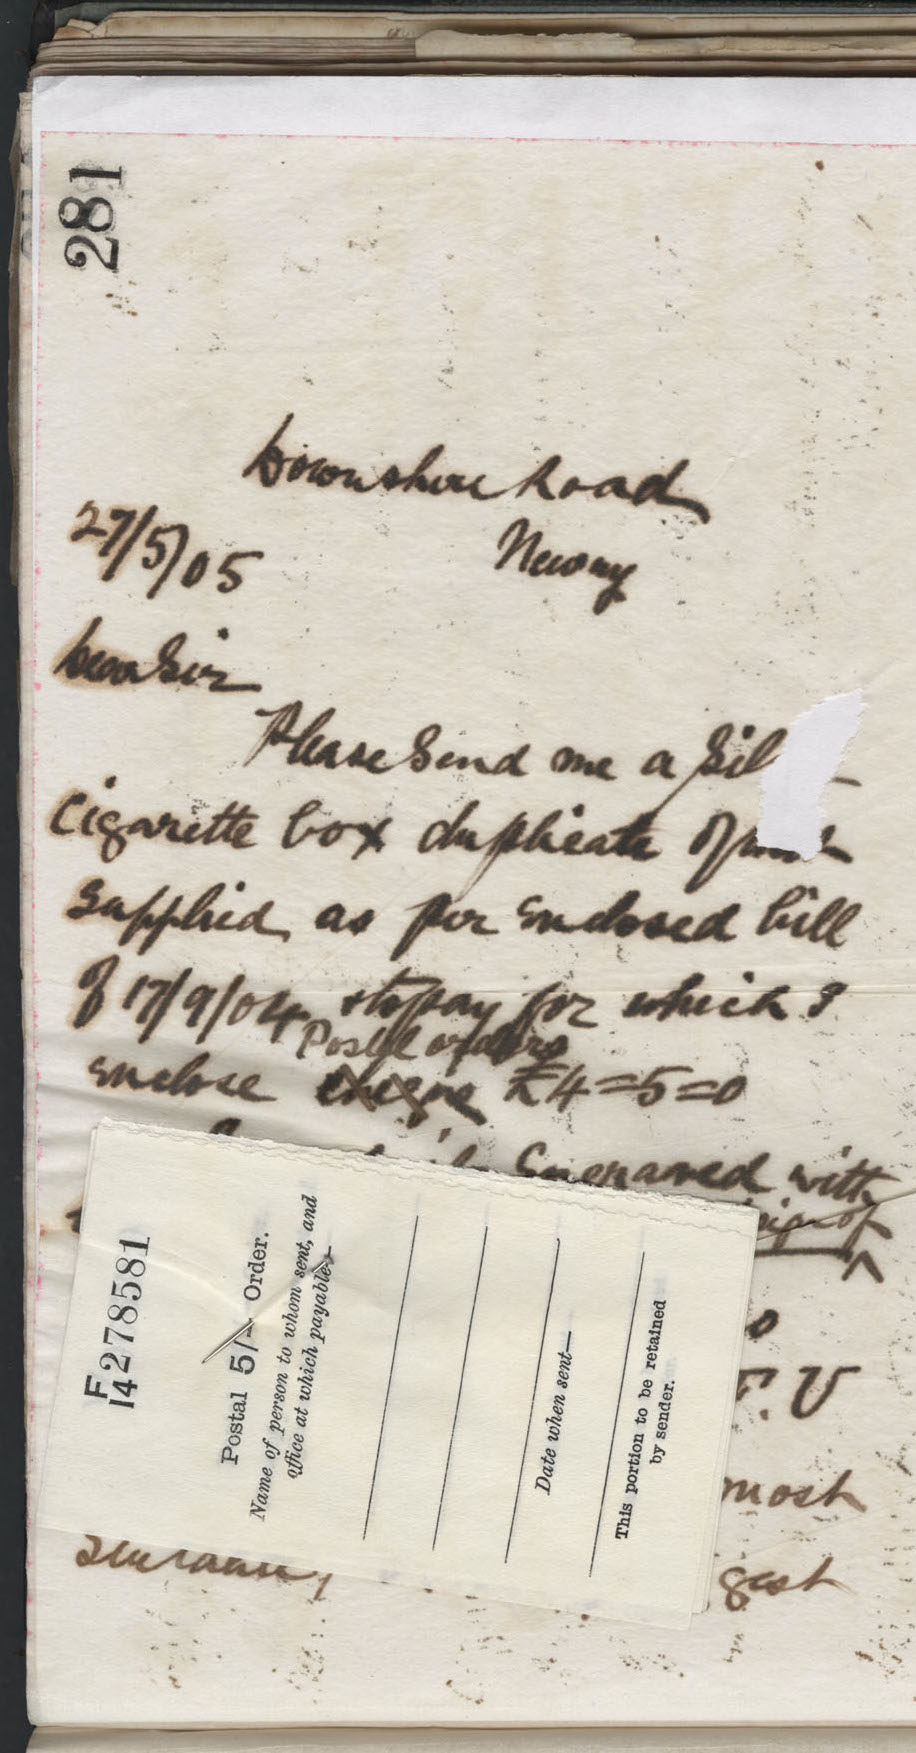 281
Downshire Road
Newry
27/5/05
Dear Sir
Please Send me a Sil
Cigarette box duplicate of
Supplied as per enclosed bill
of 17/9/04 for which I
Postal orders
enclose cheque £4=5=0
Engraved with
sign of
o
F. V
most
gest
F
14 278581
Postal 5/- Order.
Name of person to whom sent, and
office at which payable—
Date when sent—
This portion to be retained
by sender.